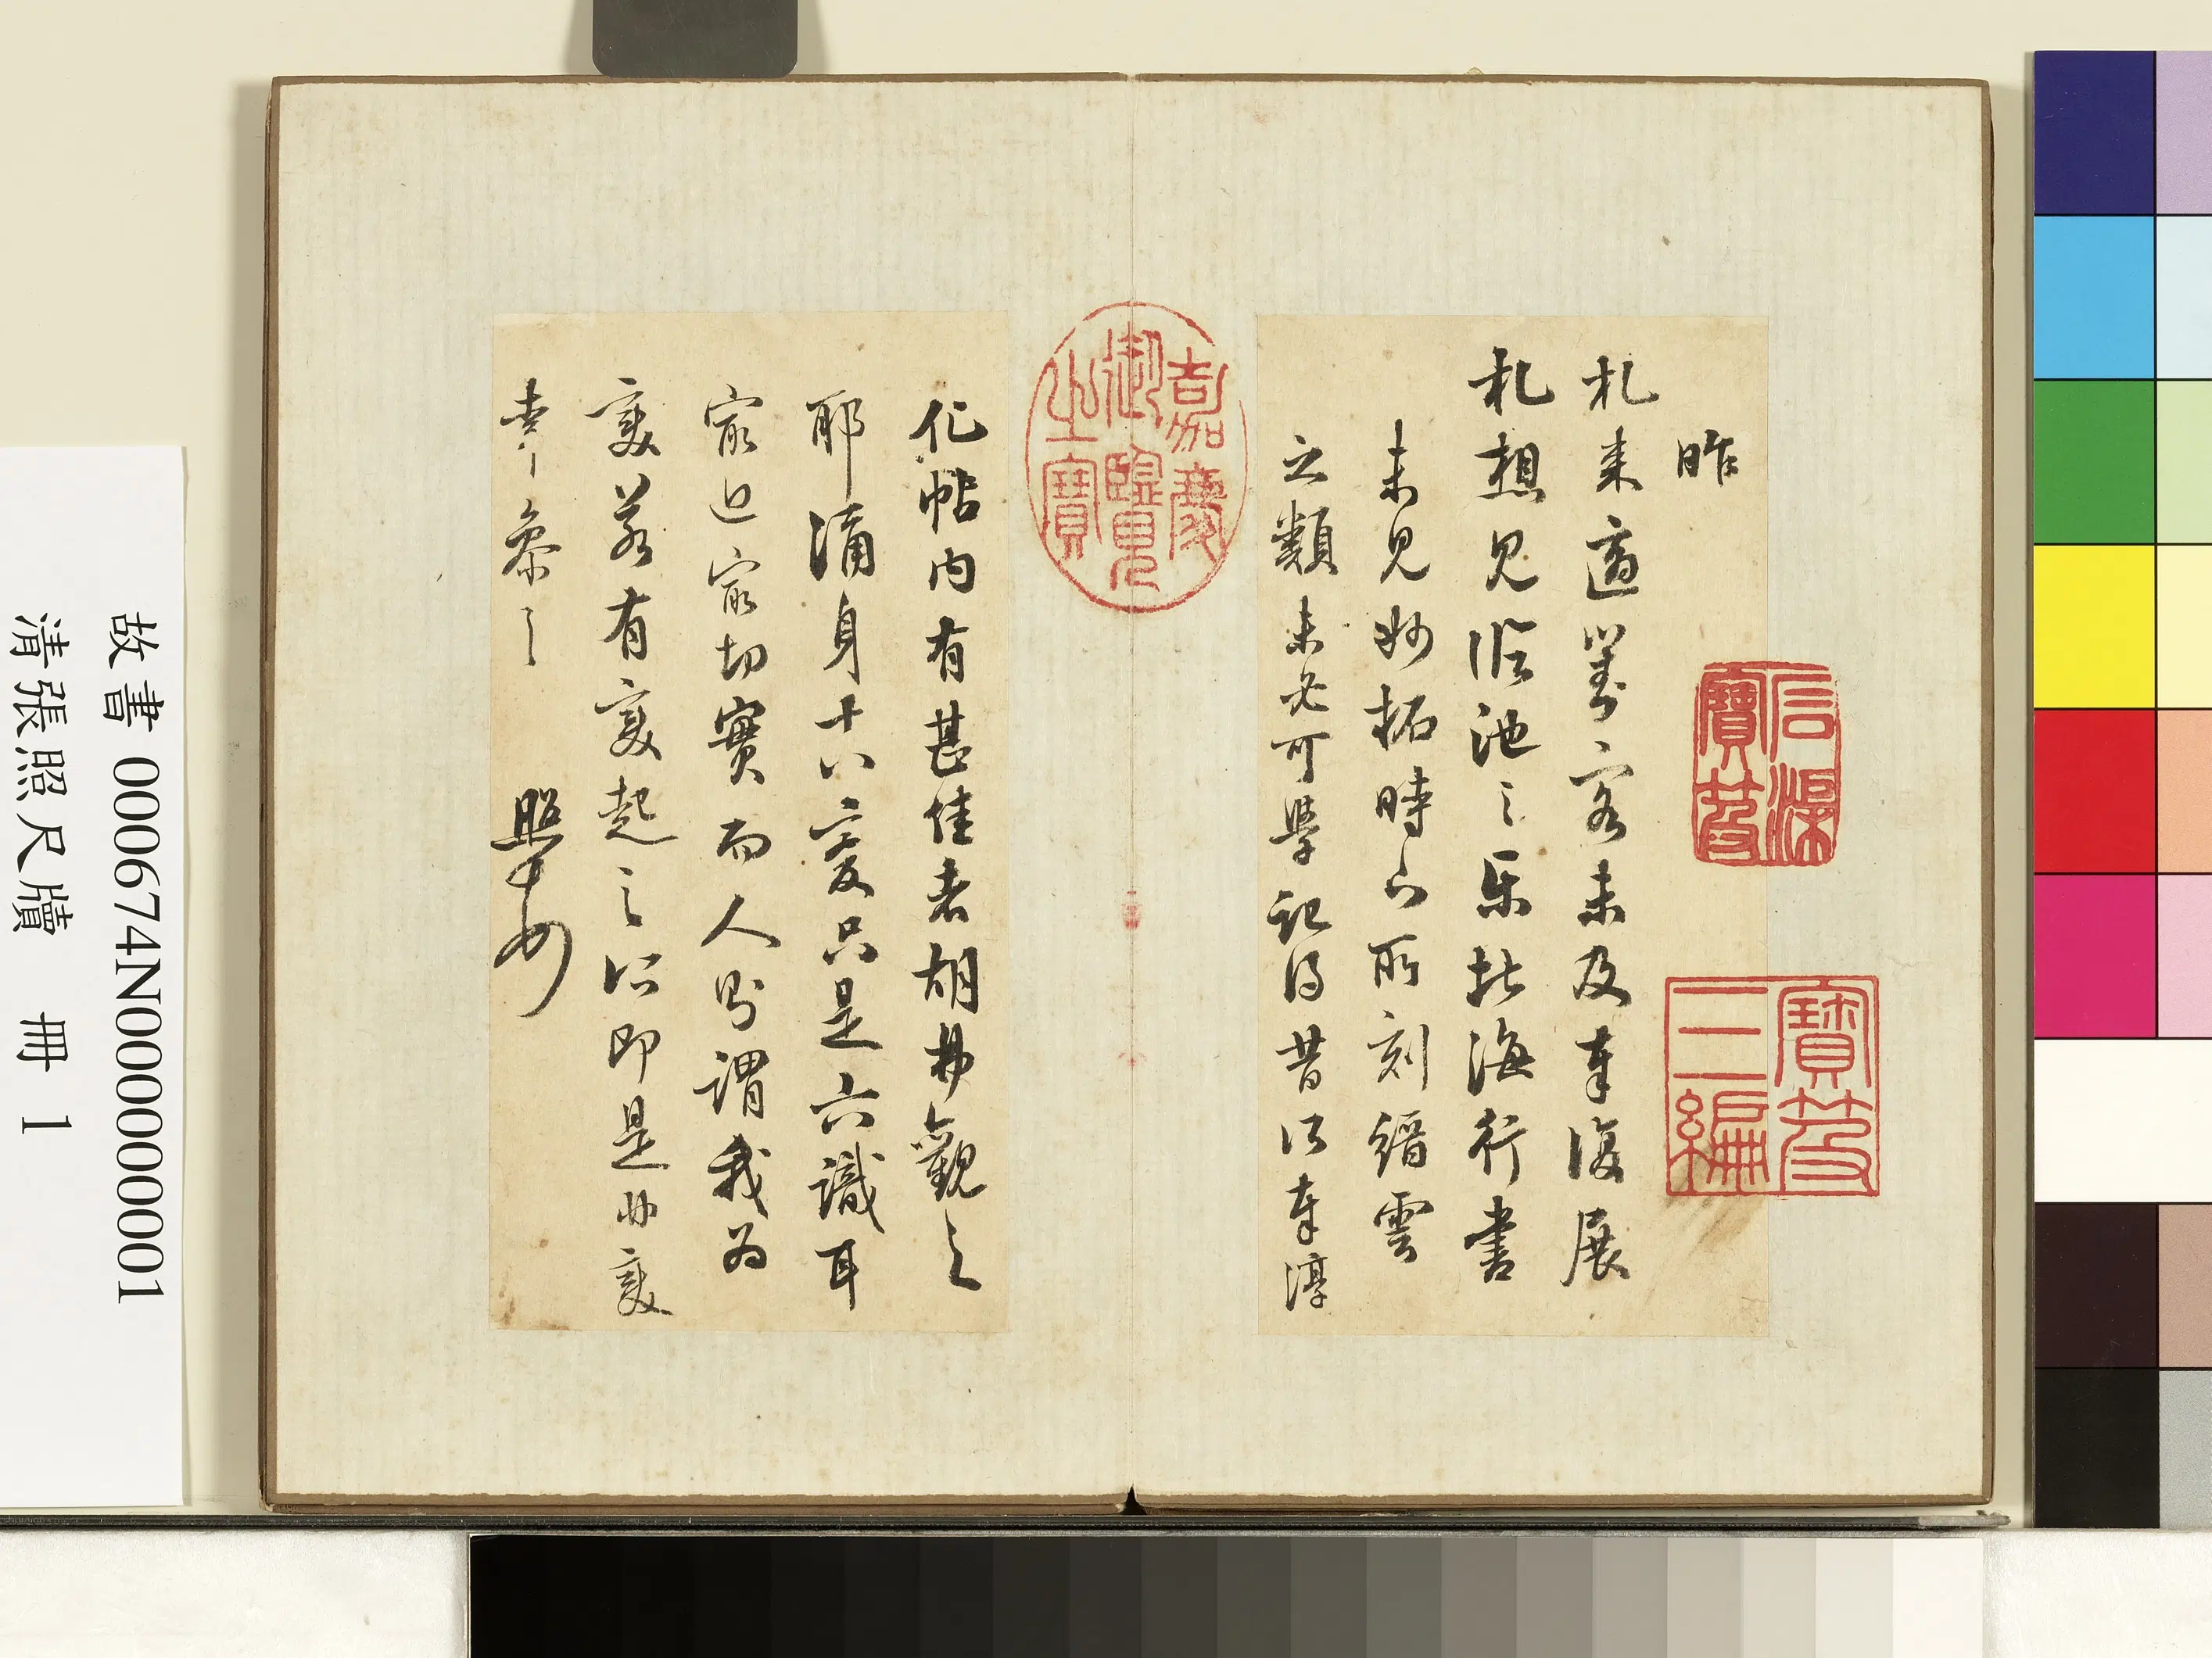 昨
札來適對客未及奉復展
札想見臨池之樂北海行書
未見妙拓時下所刻縉雲
之類未必可學記得昔以奉淳
化帖內有甚佳者胡弗觀之
耶涌身十八變只是六識耳
最近最切實而人則謂我為
變若有變起之所即是非變
幸參之
照
嘉慶
御覽
之寶
石渠
寶笈
寶笈
三編
故書 000674N000000001
清張照尺牘 冊 1